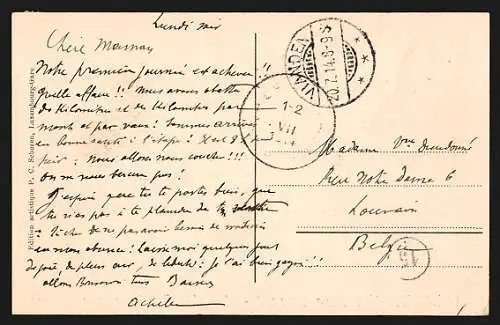 Lundi soir
Chère Maman
Notre première journée est achevée !!
quelle affaire !! Nous avons abattu
des Kilomètres et des Kilomètres par
monts et par vaux : Sommes arrivés
en bonne santé à l'étape : Il est 8 h
soir. Nous allons nous coucher !!!
On ne nous bercera pas !
J'espère que tu te portes bien, que
tu n'as pas à te plaindre de ta
!! Tâche de ne pas avoir besoin de médecin
en mon absence : Laisse moi quelques jours
de paix, de plein air, de liberté : Je l'ai bien gagné !!
allons Bonsoir tous Baisers
Achille
Madame Vve Dieudonné
Rue Notre Dame 6
Louvain
Belgique
VIANDEN
20.7.14.8-9S
1-2
VII
15
Edition artistique P. C. Schoren, Luxembourg-Gare